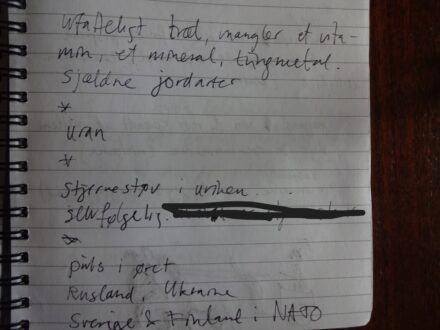 træt, mangler et vita-
min, et mineral, tungmetal.
Sjældne jordarter
*
Uran
*
Stjernestøv i urinen...
Selvfølgelig.
*
puls i øret
Rusland, Ukraine
Sverige & Finland i NATO